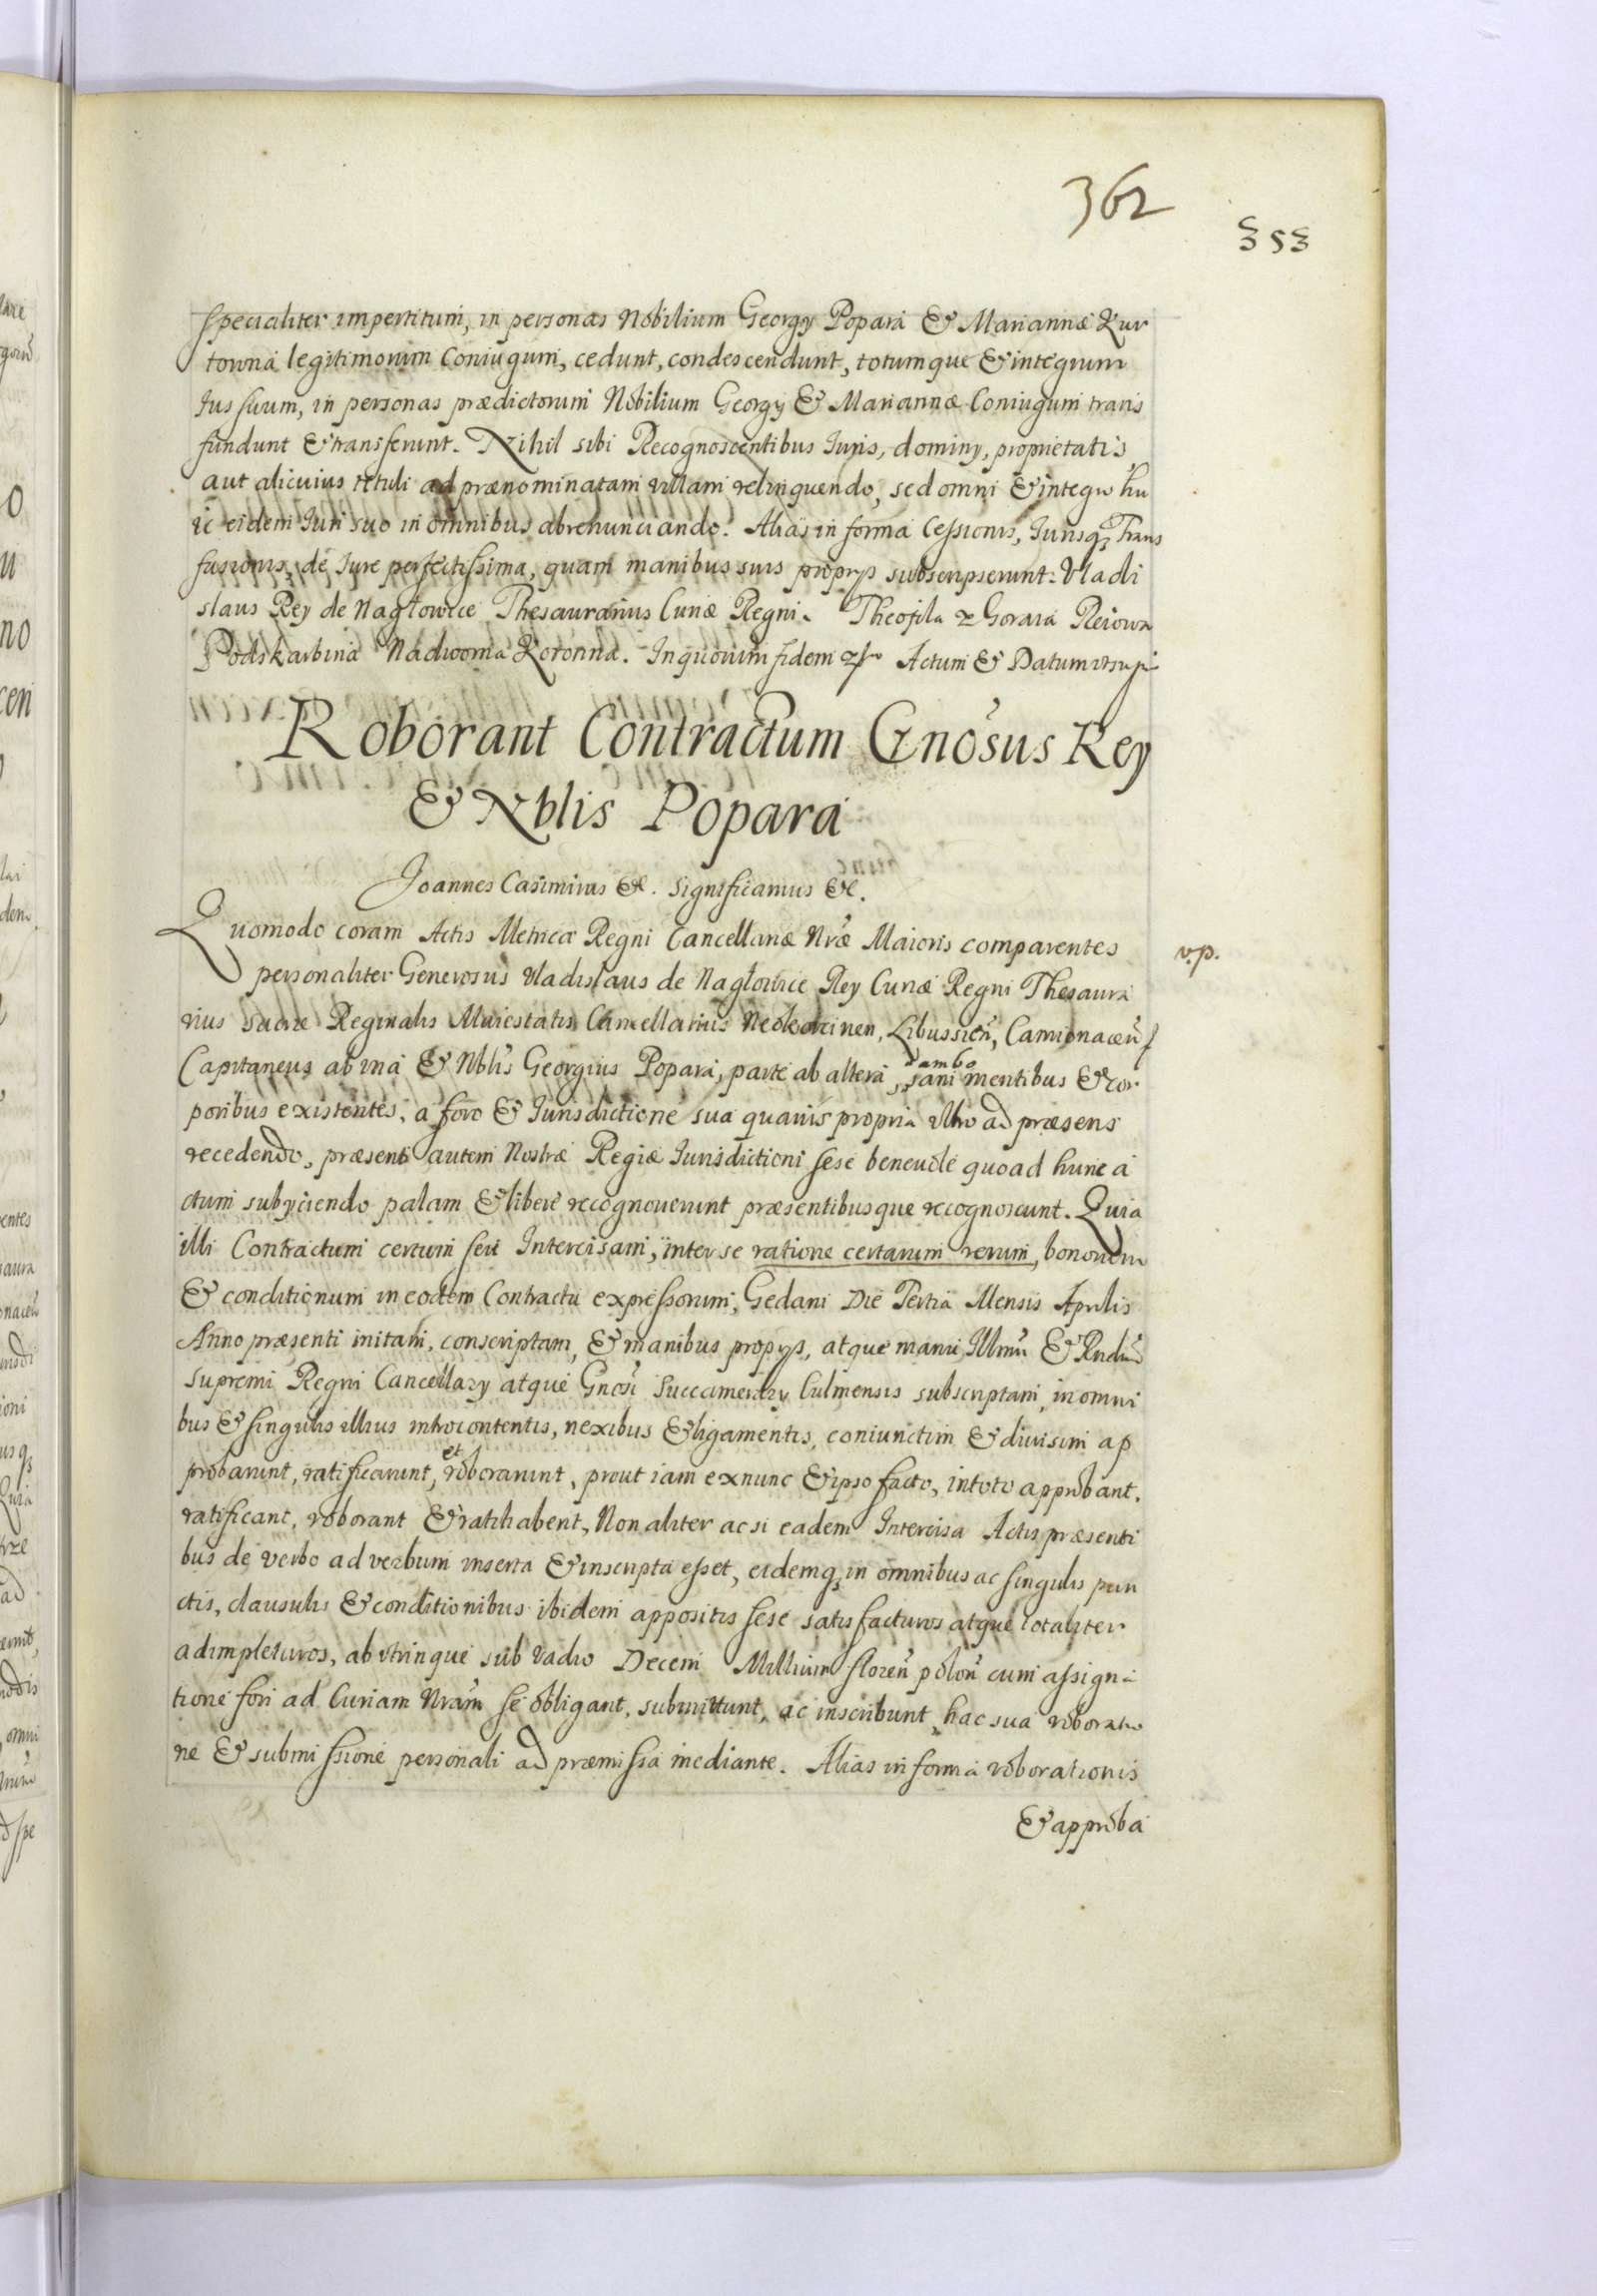 362
353
specialiter impertitum, in personas Nobilium Georgy Popara & Mariannæ Kur
towna legitimorum Coniugum, cedunt, condescendunt, totumque & integrum
Jus suum, in personas prædictorum Nobilium Georgÿ & Mariannæ Coniugum trans
fundunt & transferunt. Nihil sibi Recognoscentibus Juris, dominÿ, proprietatis
aut alicuius tituli ad prænominatam villam relinquendo, sed omni & integro hu
ic eidem Juri suo in omnibus abrenunciando. Alias in forma Cessionis, Jurisq₃ Trans
fusionis, de Jure perfectissima, quam manibus suis proprÿs subscripserunt. Vladi
slaus Rey de Nagłowice Thesaurarius Curiæ Regni. Theofila z Goraia Reiowa
Podskarbina Nadworna Koronna. In quorum fidem Actum & Datum ut supra
Roborant Contractum Gnosus Rey
& Nblis Popara
Joannes Casimirus &c. Significamus &c.
Quomodo coram Actis Metricæ Regni Cancellariæ Nræ Maioris comparentes
v.p.
personaliter Generosus Vladislaus de Nagłowice Rey Curiæ Regni Thesaura
rius Sacræ Reginalis Maiestatis Cancellarius Neokorcinen, Libussien, Camionacen
Capitaneus ab una & Nblis Georgius Popara, parte ab altera, sani mentibus & cor
ambo
poribus existentes, a foro & Jurisdictione sua quavis propria ultro ad præsens
recedendo, præsenti autem Nostræ Regiæ Jurisdictioni sese benevole quoad hunc a
ctum subÿciendo palam & libere recognoverunt præsentibusque recognoscunt. Quia
illi Contractum certum seu Intercisam, inter se ratione certarum rerum, bonorum
& conditionum in eodem Contractu expressorum, Gedani Die Tertia Mensis Aprilis
Anno præsenti initam, conscriptam, & manibus proprÿs, atque manu Illmi & Rndmi
Supremi Regni Cancellarÿ atque Gnosi Succamerarÿ Culmensis subscriptam, in omni
bus & singulis illius introcontentis, nexibus & ligamentis, coniunctim & divisim ap
probarunt, ratificarunt, et roborarunt, prout iam ex nunc & ipso facto, in toto approbant,
ratificant, roborant & ratihabent, Non aliter ac si eadem Intercisa Actis præsenti
bus de verbo ad verbum inserta & inscripta esset, eidemq₃ in omnibus ac singulis pun
ctis, clausulis & conditionibus ibidem appositis sese satisfacturos atque totaliter
adimpleturos, ab utrinque sub vadio Decem Millium floren polon cum assigna
tione fori ad Curiam Nram se obligant, submittunt, ac inscribunt, hac sua roboratio
ne & submissione personali ad præmissa mediante. Alias in forma roborationis
& approba